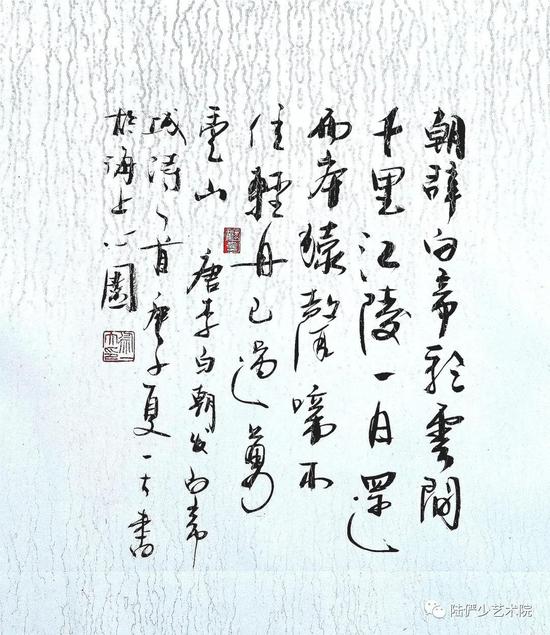 朝辭白帝彩雲間
千里江陵一日還
兩岸猿聲啼不
住輕舟已過萬
重山 唐李白朝发白帝
城詩一首庚子夏一大書
於海上心園
陆俨少艺术院